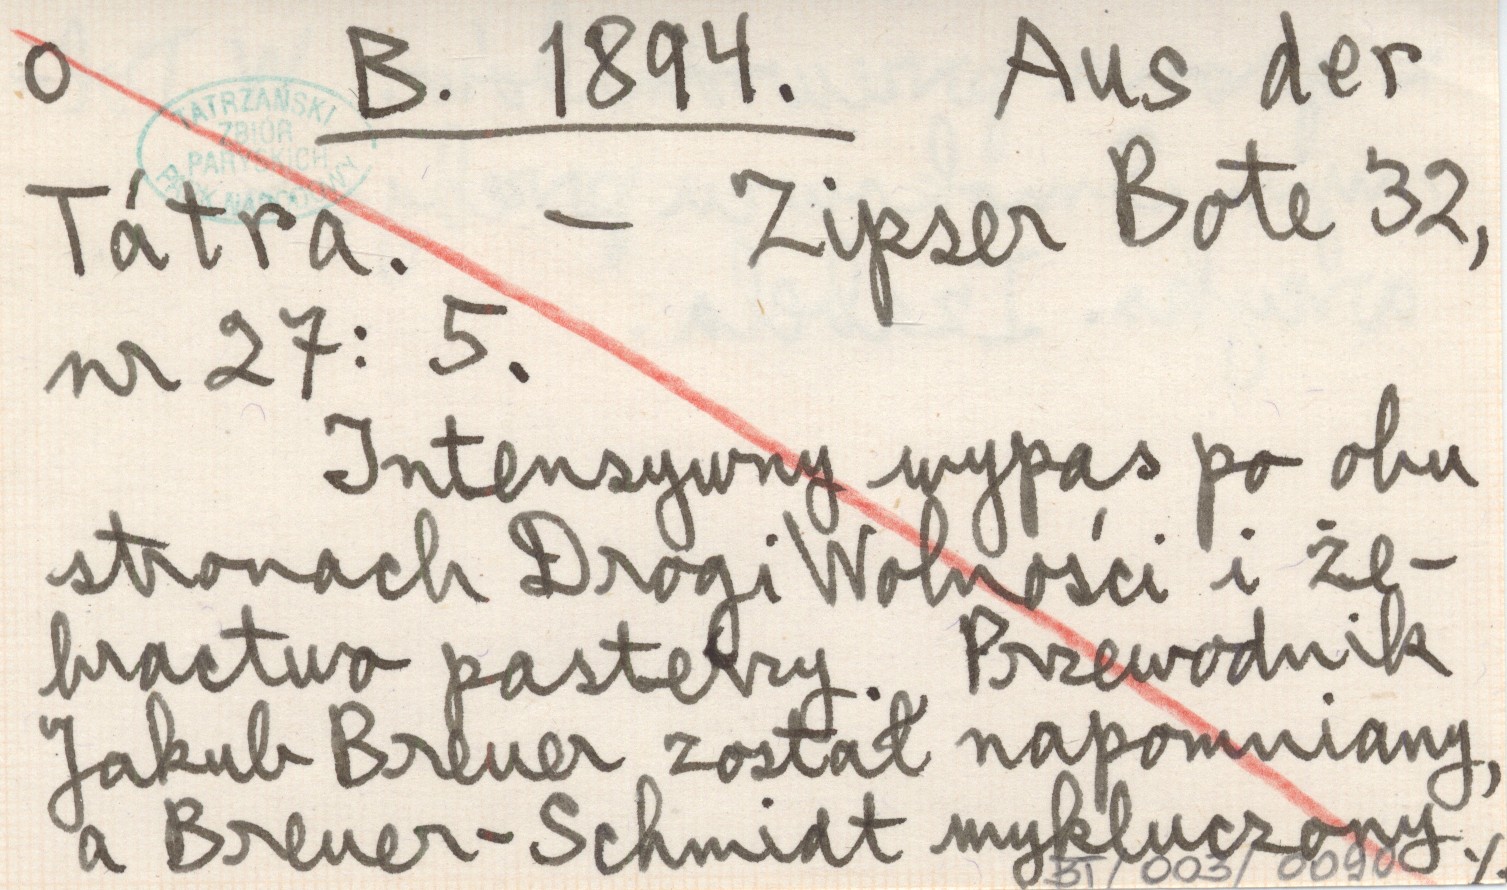 O B. 1894. Aus der
TATRZAŃSKI
ZBIÓR
PARYSKICH
PARK NARODOWY
Tátra. — Zipser Bote 32,
nr 27: 5.
Intensywny wypas po obu
stronach Drogi Wolności i że-
bractwo pasterzy. Przewodnik
Jakub Breuer został napomniany,
a Breuer-Schmidt wykluczony ./.
BT/003/0090